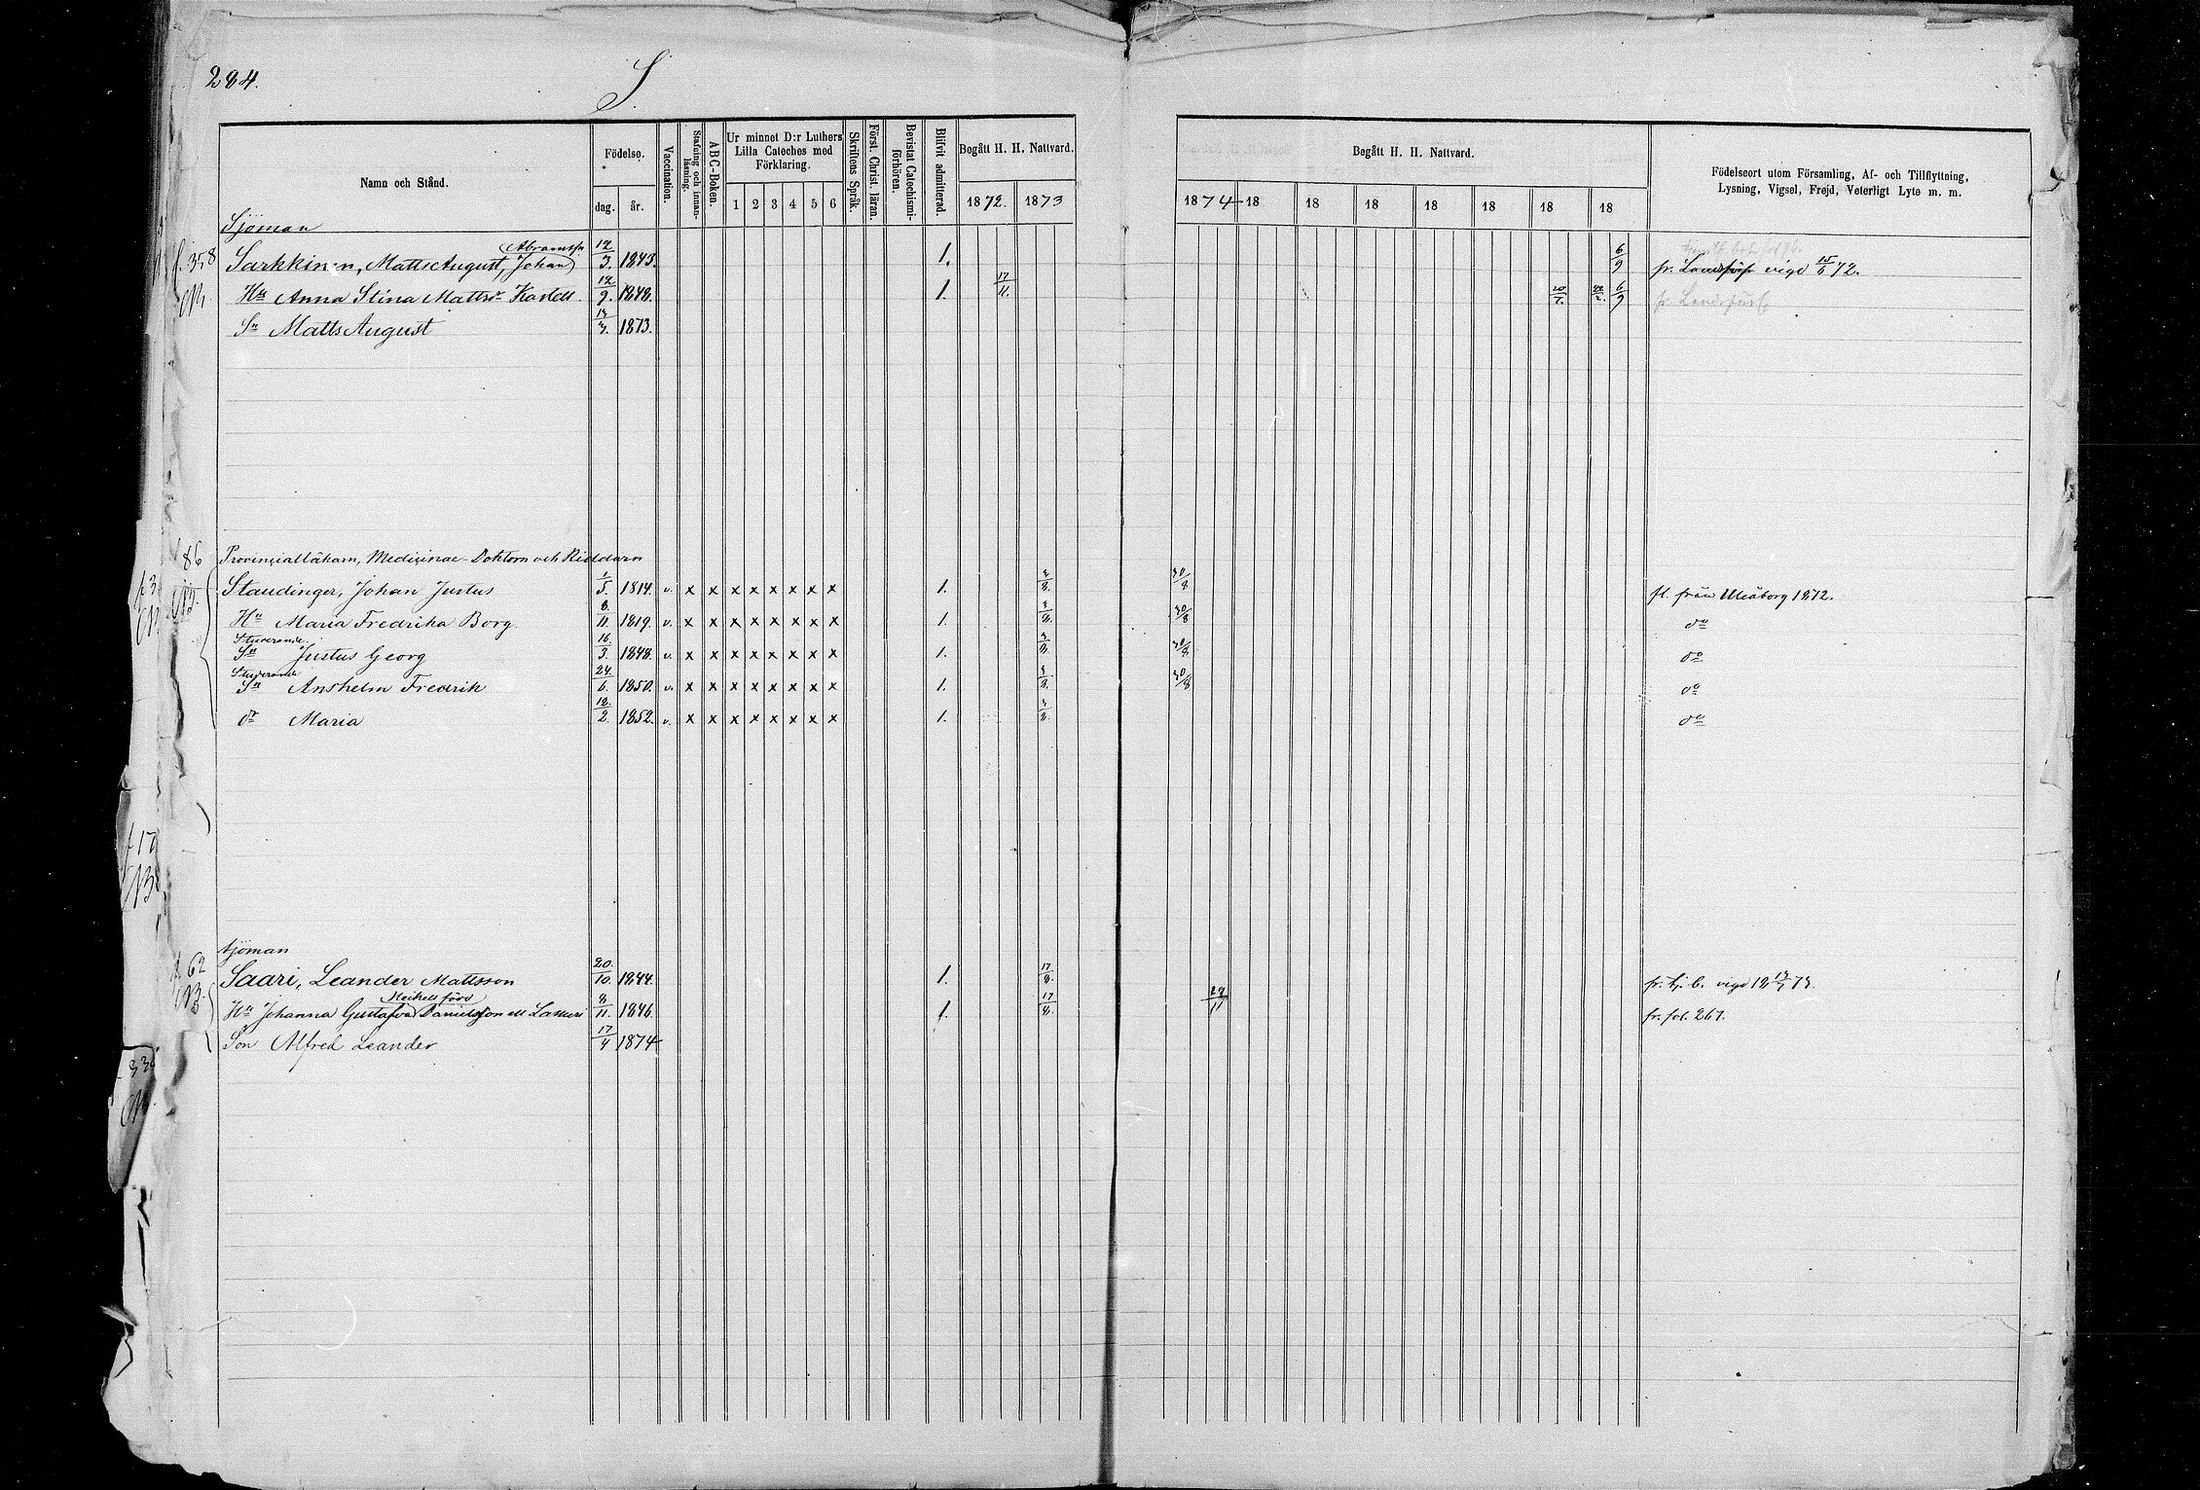 284.
S.
Namn och Stånd.
Födelse.
dag. år.
Vaccination.
Stafning och innanläsning.
ABC-Boken.
Ur minnet D:r Luthers Lilla Cateches med Förklaring.
1 2 3 4 5 6
Skriftens Språk.
Först. Christ. läran.
Bevistat Catechismiförhören.
Blifvit admitterad.
Begått H. H. Nattvard.
1872. 1873
Begått H. H. Nattvard.
1874 18 18 18 18 18 18 18
Födelseort utom Församling, Af- och Tillflyttning,
Lysning, Vigsel, Frejd, Veterligt Lyte m. m.
Sjöman
f. 358 Sarkkinen, Matts August, Johan Abramss. 12/3. 1845. 1. 6/9 fr. vigd 15/6 72.
Hu Anna Stina Mattsdr Kastell 12/9. 1848. 1. 17/11. 20/7. 22/2. 6/9
Sn Matts August 13/3. 1873.
86 Provinsialläkarn, Medicinae-Doktorn och Riddarn
Staudinger, Johan Justus 1/5. 1814. v. x x x x x x x x 1. 3/8. 30/8 fl. från Uleåborg 1872.
Hu Maria Fredrika Borg 8/11. 1819. v. x x x x x x x x 1. 3/8. 30/8 do
Studerande
Sn Justus Georg 16/3. 1848. v. x x x x x x x x 1. 3/8. 30/8 do
Studerande
Sn Anshelm Fredrik 24/6. 1850. v. x x x x x x x x 1. 3/8. 30/8 do
dr Maria 12/2. 1852. v. x x x x x x x x 1. 3/8. do
f 17
Sjöman
62 Saari, Leander Mattsson 20/10. 1844. 1. 17/8. fr. vigd 73.
Hu Johanna Gustafva 8/11. 1846. 1. 17/8. 29/11 fr. fol. 267.
Son Alfred Leander 17/4 1874